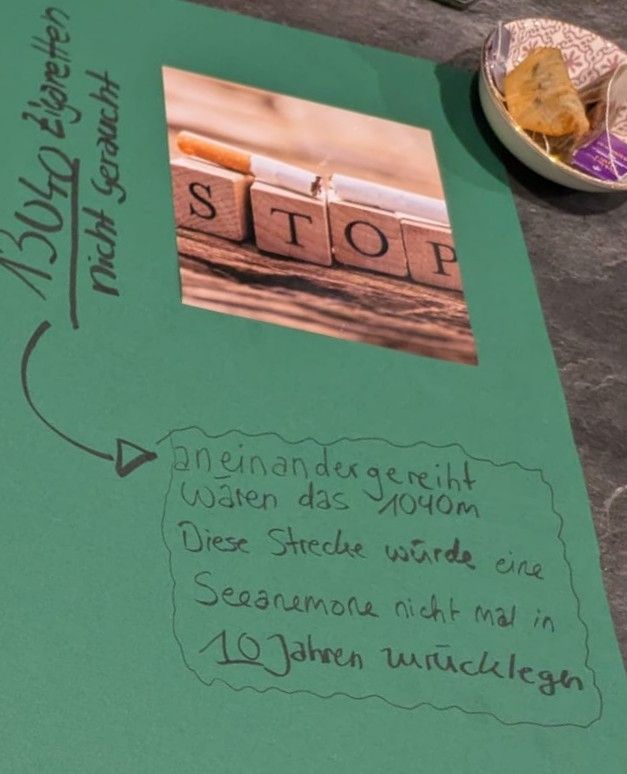 13040 Zigaretten
nicht geraucht
STOP
aneinandergereiht
wären das 1040m
Diese Strecke würde eine
Seeanemone nicht mal in
10 Jahren zurücklegen